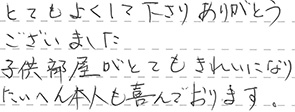 とてもよくして下さり ありがとう
ございました
子供部屋がとてもきれいになり
たいへん本人も喜んでおります。